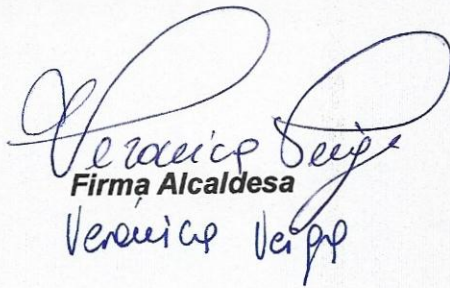 Veronica Veiga
Firma Alcaldesa
Verónica Veiga